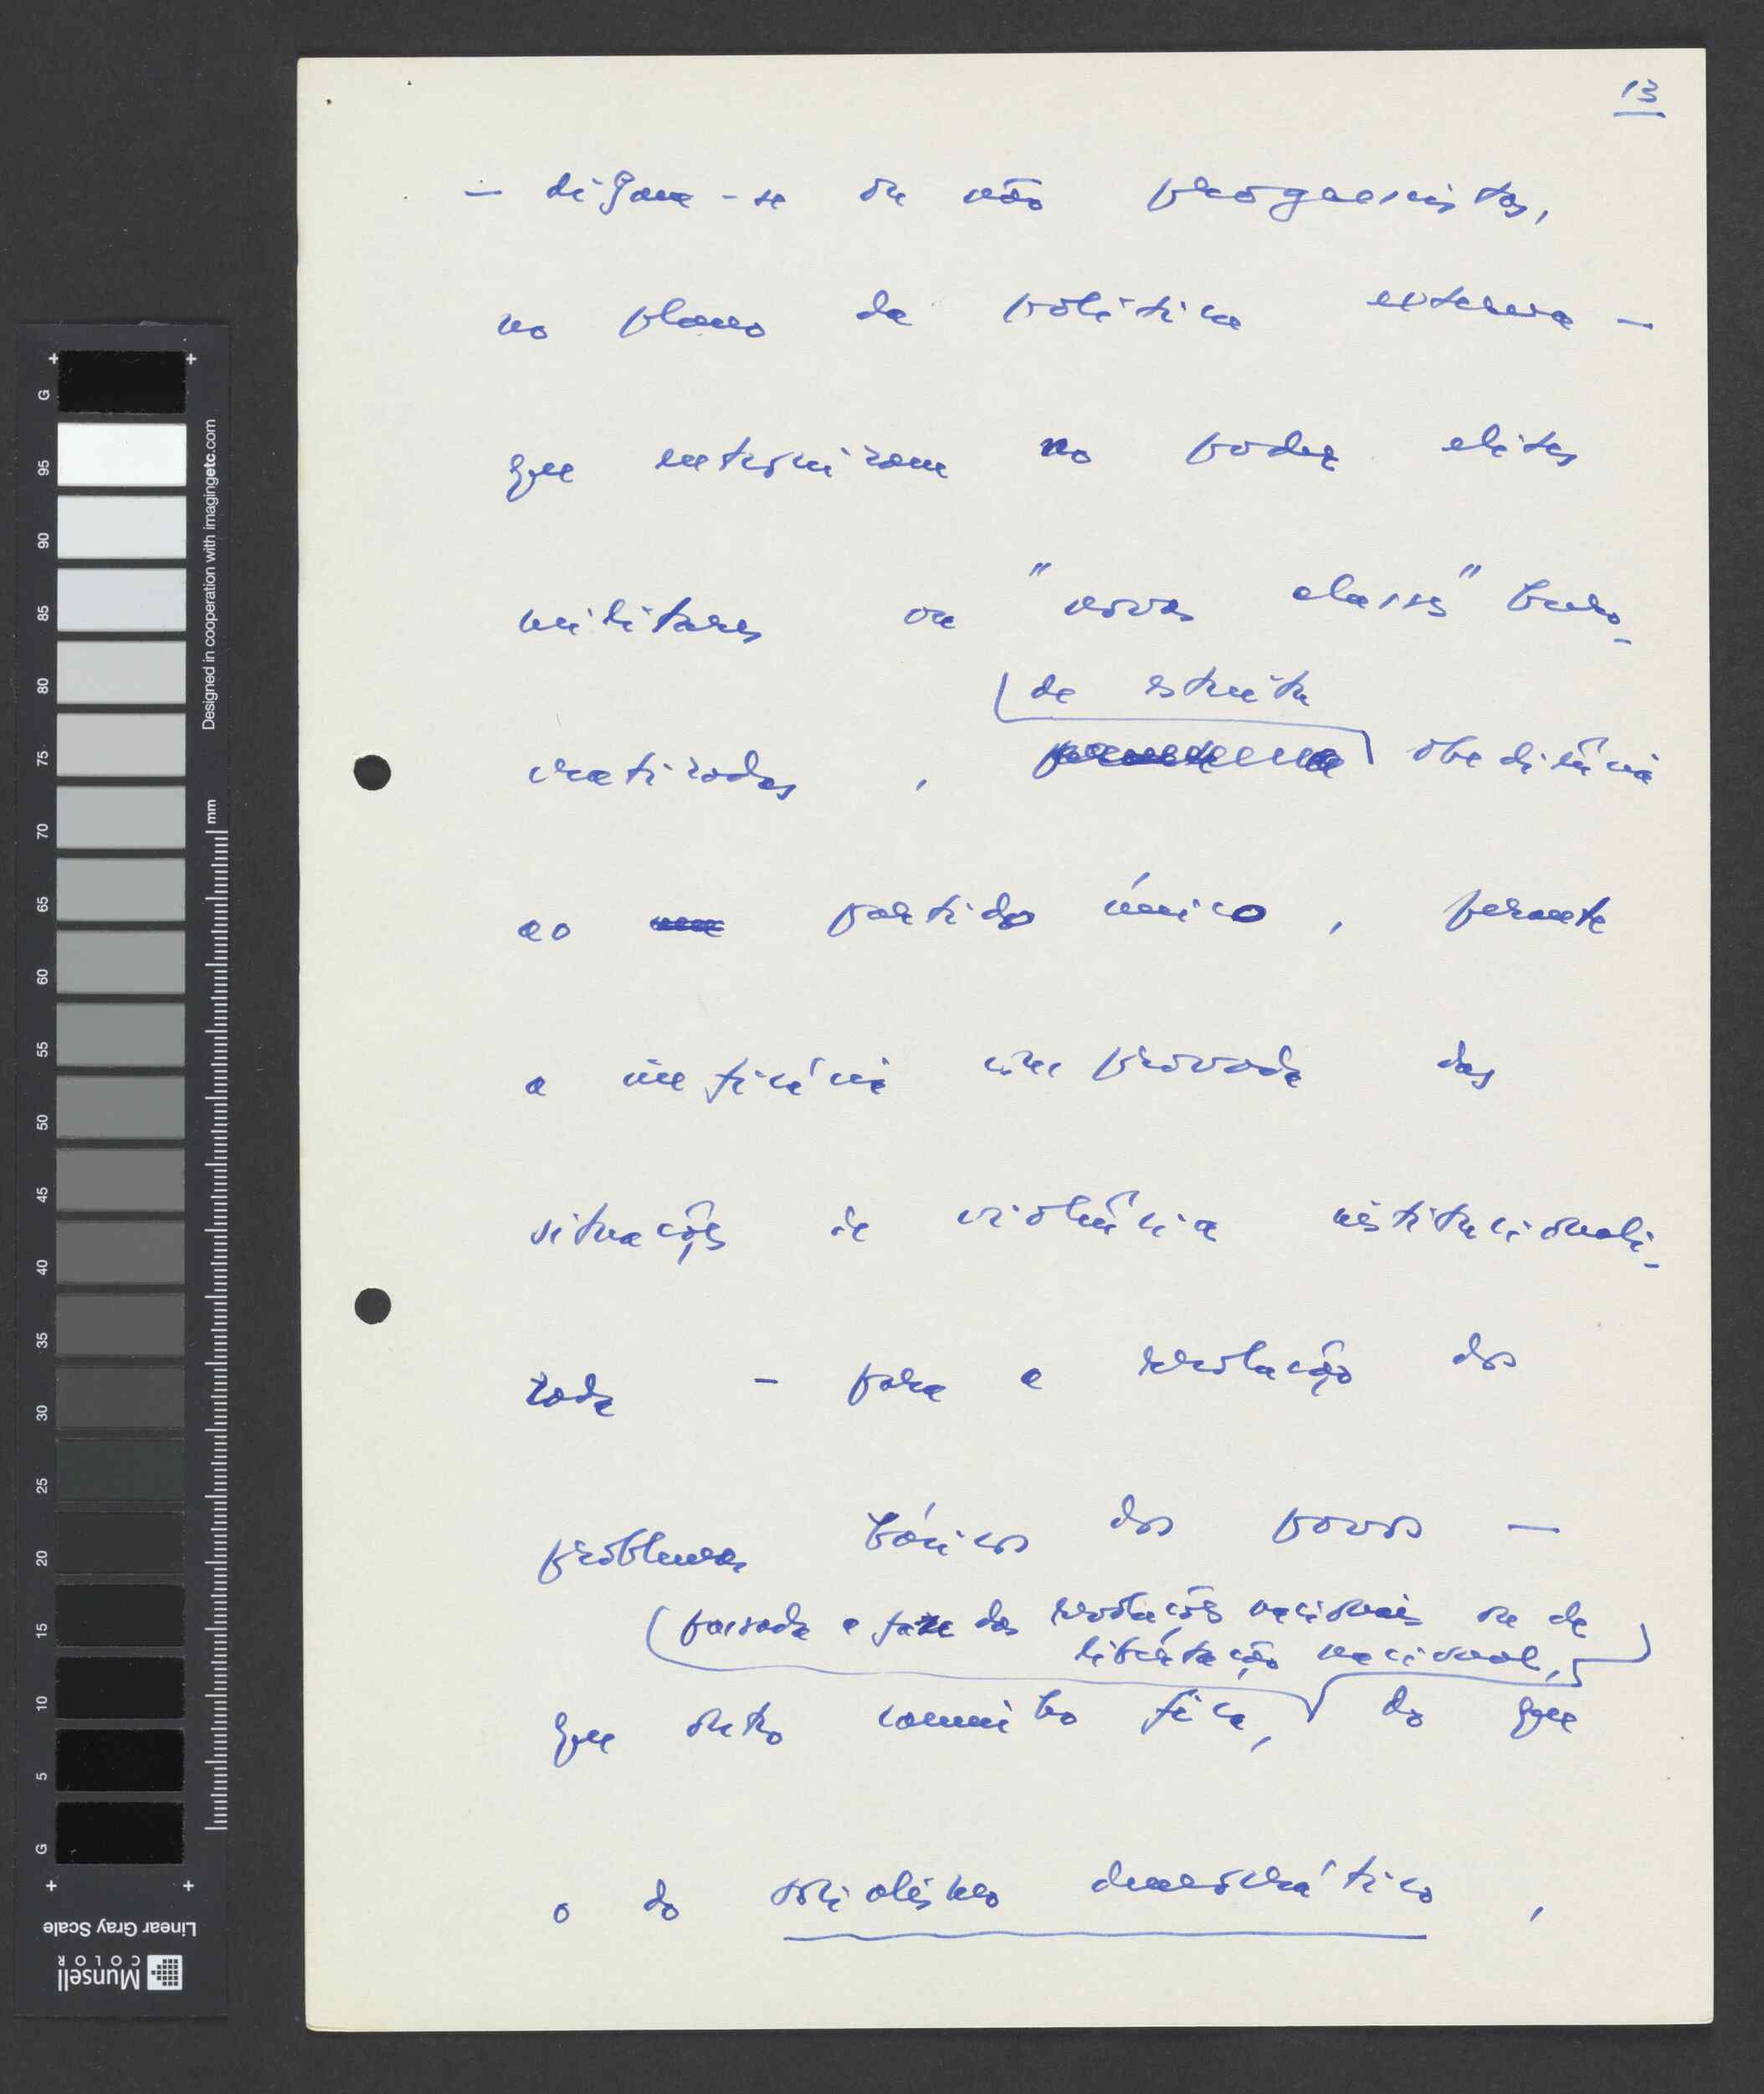 13
— digam-se ou não progressistas,
no plano da política externa —
que entronizam no poder elites
militares ou "novas classes" buro-
de estrita
cratizadas, obediência
ao um partido único, perante
a ineficácia comprovada das
situações de violência institucionali-
zada – para a resolução dos
problemas básicos dos povos —
passada a fase das revoluções nacionais ou de
libertação nacional,
que outro caminho fica, do que
o do socialismo democrático,
G
95
90
85
80
75
70
65
60
55
50
45
40
35
30
25
20
15
10
5
G
Designed in cooperation with imagingetc.com
mm
Linear Gray Scale
Munsell
COLOR